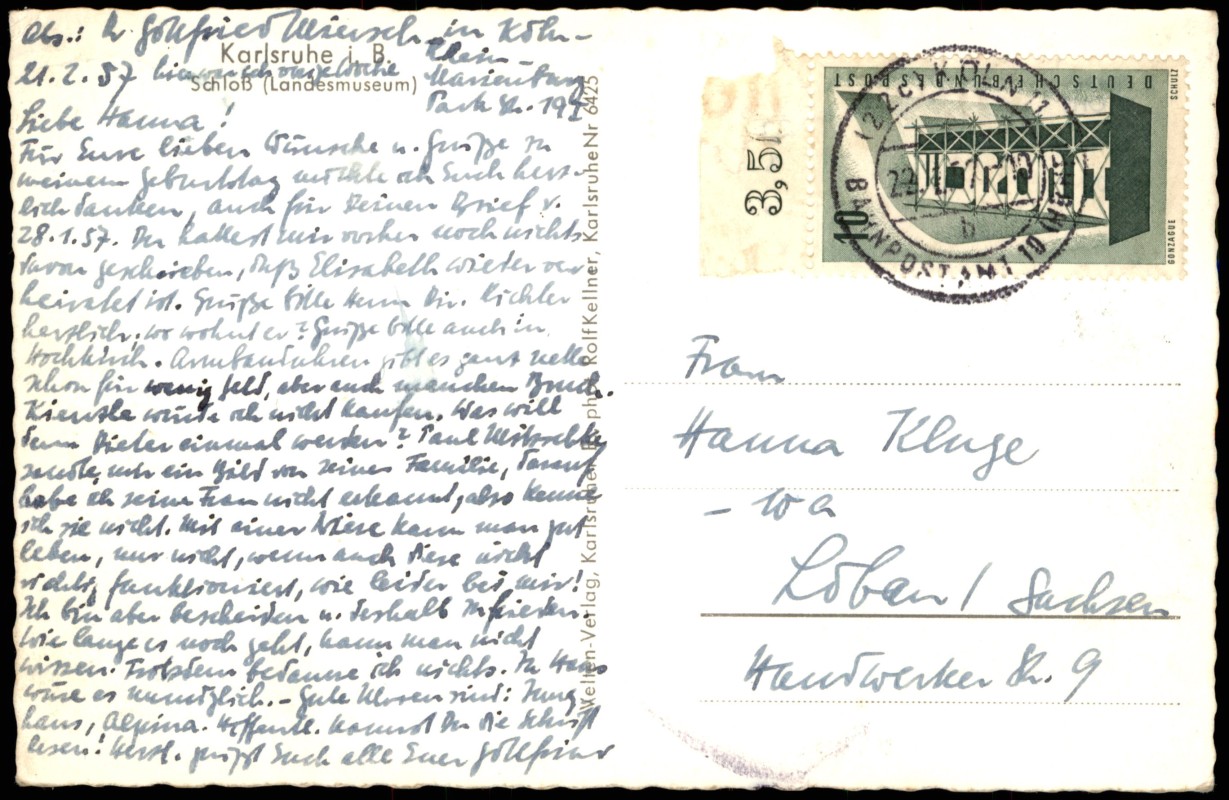 Abs.: Dr. Gottfried Miersch in Köln-
Karlsruhe i. B.
Schloß (Landesmuseum)
Rhein
21.2.57
Marienburg
Park Str. 
Liebe Hanna!
Für Eure lieben Wünsche u. Grüße zu
meinem Geburtstag möchte ich Euch herz-
lich danken, auch für Deinen Brief v.
28.1.57. Du hattest mir vorher noch nichts
davon geschrieben, daß Elisabeth wieder ver-
heiratet ist. Grüße bitte Herrn Dir. Richter
herzlich, wo wohnt er? Grüße bitte auch in
Hochkirch. Armbanduhren gibt es ganz nette
schon für wenig Geld, aber auch manchen Bruch.
Kienzle würde ich nicht kaufen. Was will
denn Dieter einmal werden? Paul
sandte mir ein Bild von seiner Familie, darauf
habe ich seine Frau nicht erkannt, also kenne
ich sie nicht. Mit einer Niere kann man gut
leben, nur nicht, wenn auch diese nicht
richtig funktioniert, wie leider bei mir!
Ich bin aber bescheiden u. deshalb zufrieden.
Wie lange es noch geht, kann man nicht
wissen. Trotzdem bedaure ich nichts. Zu Haus
wäre es unmöglich. – Gute Uhren sind: Jung-
hans, Alpina. Hoffentl. kannst Du die Schrift
lesen! Herzl. grüßt Euch alle Euer Gottfried
Welten-Verlag, Karlsruhe Rolf Kellner, Karlsruhe Nr 6425
3,51
DEUTSCHE BUNDESPOST
SCHULZ
GONZAGUE
10
(22c) KÖLN 11
22.
b
BAHNPOSTAMT 10
Frau
Hanna Kluge
Löbau / Sachsen
Handwerker Str. 9